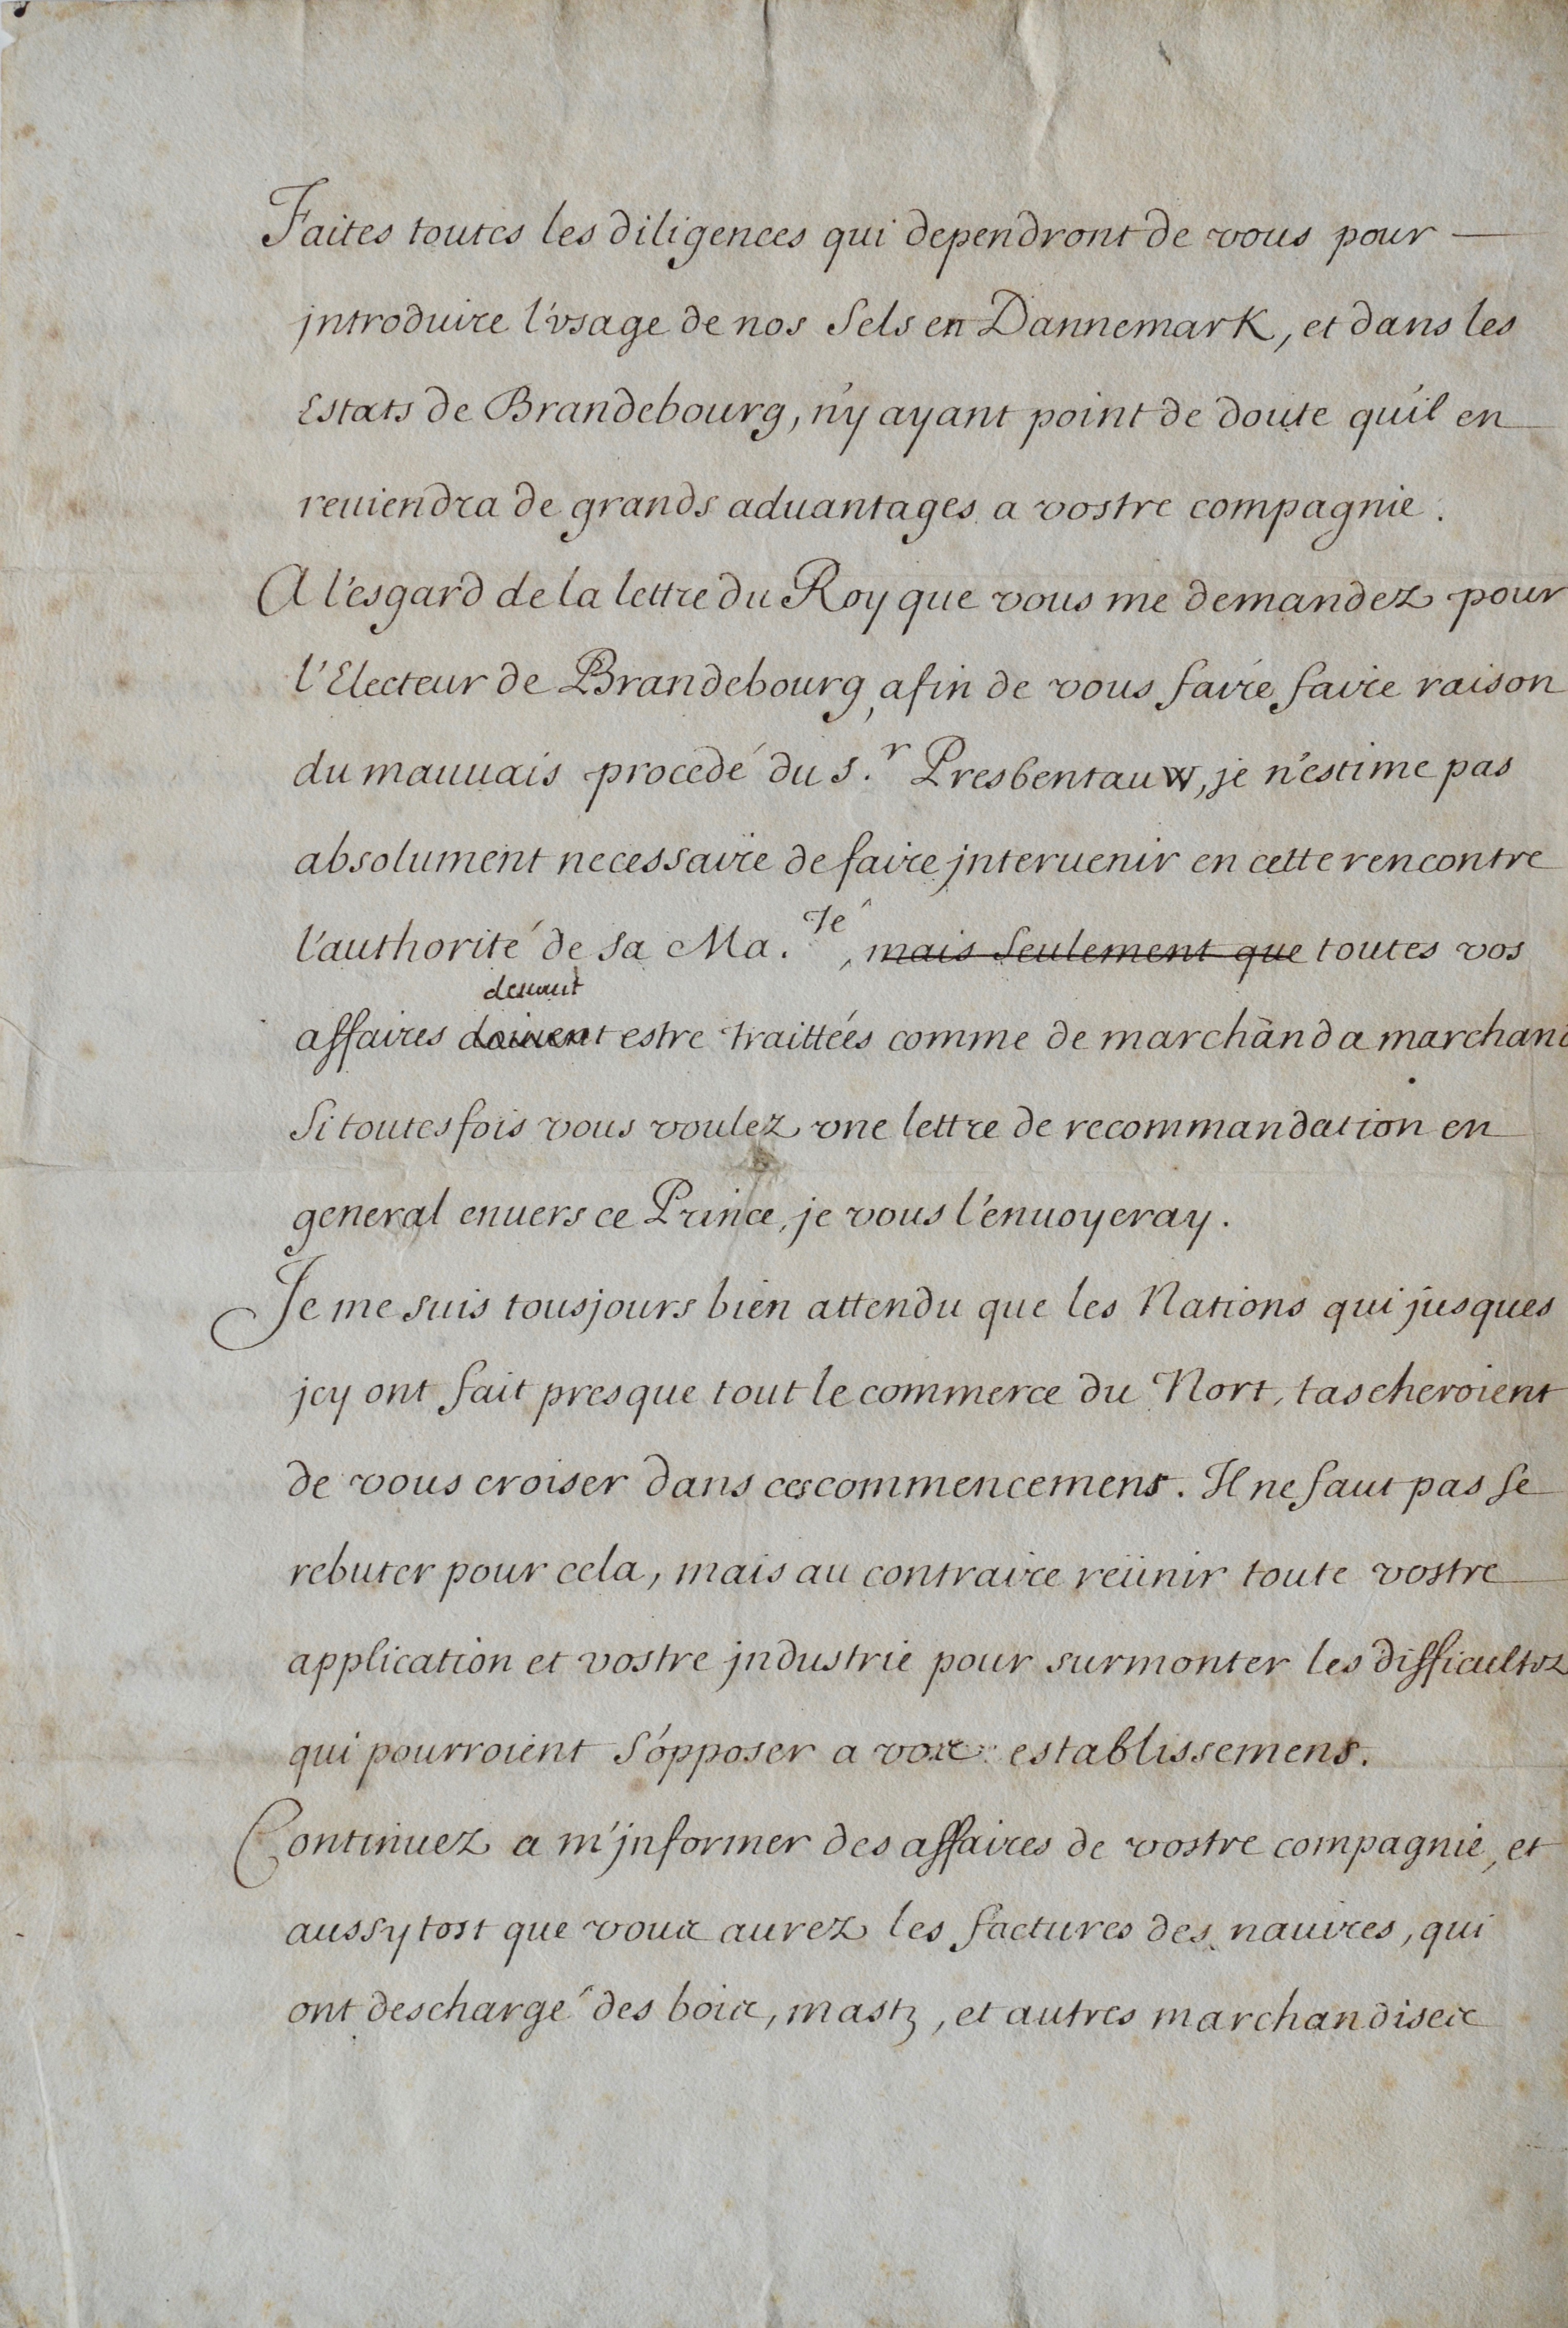 Faites toutes les diligences qui dependront de vous pour —
jntroduire l'vsage de nos Sels en Dannemark, et dans les
Estats de Brandebourg, n'y ayant point de doute qu'il en
reuiendra de grands aduantages a vostre compagnie.
A l'esgard de la lettre du Roy que vous me demandez pour
l'Electeur de Brandebourg, afin de vous faire faire raison
du mauuais procedé du s.r Presbentauw, je n'estime pas
absolument necessaire de faire jnteruenir en cette rencontre
l'authorité de sa Ma.té, mais seulement que toutes vos
deuant
affaires doiuent estre traittées comme de marchand a marchand
Si toutesfois vous voulez vne lettre de recommandation en
general enuers ce Prince, je vous l'énuoyeray.
Je me suis tousjours bien attendu que les Nations qui jusques
jcy ont fait presque tout le commerce du Nort, tascheroient
de vous croiser dans ces commencemens. Il ne faut pas se
rebuter pour cela, mais au contraire reünir toute vostre
application et vostre jndustrie pour surmonter les difficultez
qui pourroient s'opposer a vos establissemens.
Continuez a m'jnformer des affaires de vostre compagnie, et
aussytost que vous aurez les factures des nauires, qui
ont deschargé des bois, mastz, et autres marchandises